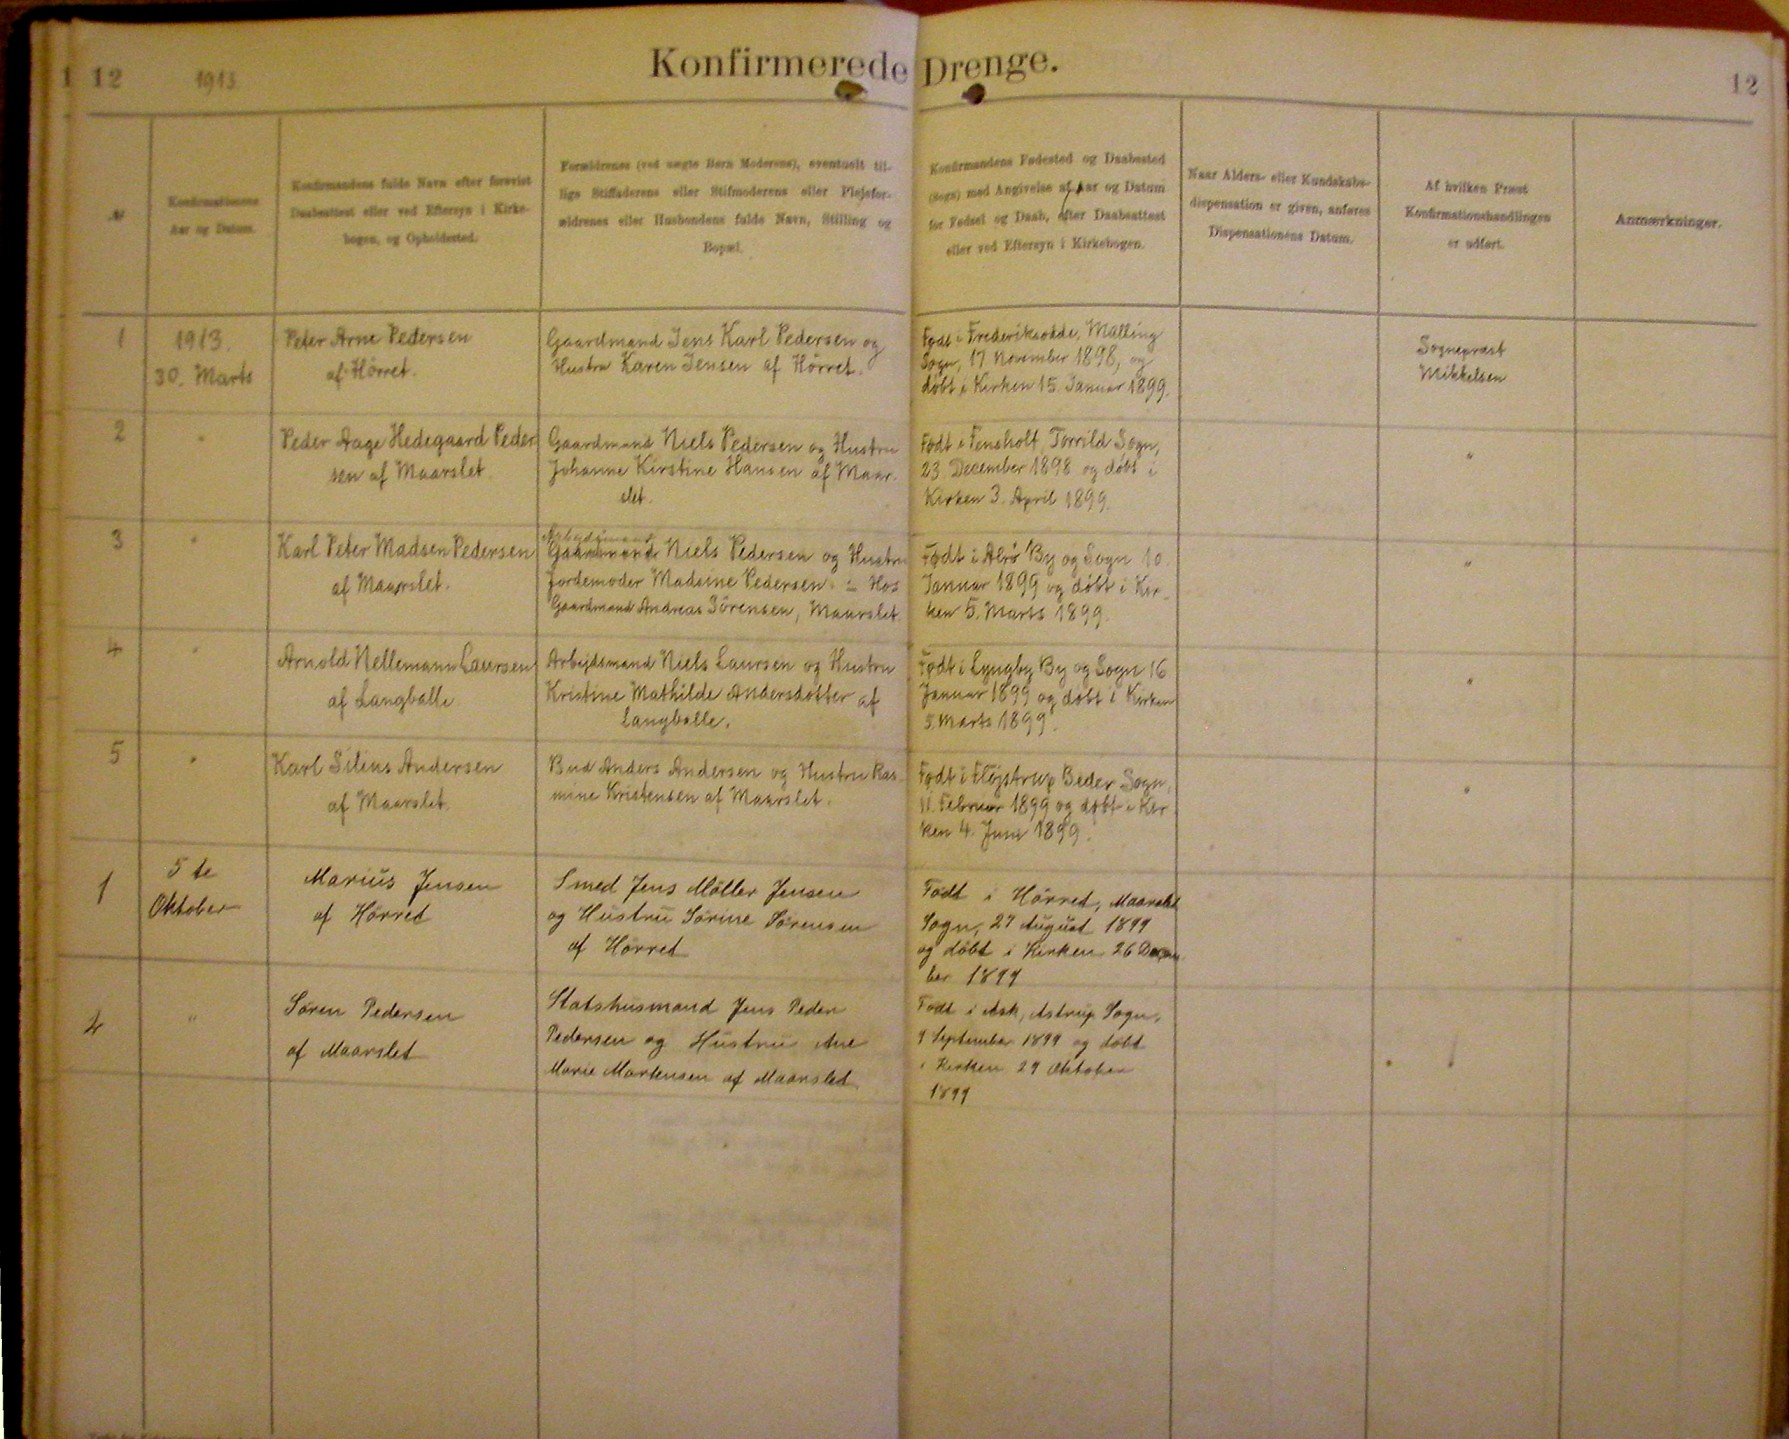 1 12
1913
Konfirmerede Drenge.
12
№
Konfirmationens
Aar og Datum.
Konfirmandens fulde Navn efter forevist
Daabsattest eller ved Eftersyn i Kirke-
bogen, og Opholdssted.
Forældrenes (ved uægte Børn Moderens), eventuelt til-
lige Stiffaderens eller Stifmoderens eller Plejefor-
ældrenes eller Husbondens fulde Navn, Stilling og
Bopæl.
Konfirmandens Fødested og Daabssted
(Sogn) med Angivelse af Aar og Datum
for Fødsel og Daab, efter Daabsattest
eller ved Eftersyn i Kirkebogen.
Naar Alders- eller Kundskabs-
dispensation er given, anføres
Dispensationens Datum.
Af hvilken Præst
Konfirmationshandlingen
er udført.
Anmærkninger.
1
1913.
30. Marts
Peter Arne Pedersen
af Hørret.
Gaardmand Jens Karl Pedersen og
Hustru Karen Jensen af Hørret.
Født i Frederiksodde, Malling
Sogn, 17 November 1898, og
døbt i Kirken 15. Januar 1899.
Sognepræst
Mikkelsen
2
"
Peder Aage Hedegaard Peder
sen af Maarslet.
Gaardmand Niels Pedersen og Hustru
Johanne Kirstine Hansen af Maar-
slet.
Født i Fensholt, Torrild Sogn,
23. December 1898 og døbt i
Kirken 3. April 1899.
"
3
"
Karl Peter Madsen Pedersen
af Maarslet.
Arbejdsmand
Gaardmand Niels Pedersen og Hustru
Jordemoder Madsine Pedersen. ÷ Hos
Gaardmand Andreas Sörensen, Maarslet.
Født i Alrø By og Sogn 10.
Januar 1899 og døbt i Kir-
ken 5. Marts 1899.
"
4
"
Arnold Nellemann Laursen
af Langballe
Arbejdsmand Niels Laursen og Hustru
Kristine Mathilde Andersdotter af
Langballe.
Født i Lyngby By og Sogn 16
Januar 1899 og døbt i Kirken
5. Marts 1899.
"
5
"
Karl Silius Andersen
af Maarslet.
Bud Anders Andersen og Hustru Ras-
mine Kristensen af Maarslet.
Født i Fløjstrup Beder Sogn,
11. Februar 1899 og døbt i Kir
ken 4. Juni 1899.
"
1
5 te
Oktober
Marius Jensen
af Hørred
Smed Jens Møller Jensen
og Hustru Sørine Sørensen
af Hørret
Født i Hörred, Maarslet
Sogn, 27 August 1899
og døbt i Kirken 26 Decem
ber 1899
2
"
Søren Pedersen
af Maarslet
Statshusmand Jens Peder
Pedersen og Hustru Ane
Marie Mortensen af Maarslet
Født i Ask, Astrup Sogn,
9 September 1899 og døbt
i Kirken 29 Oktober
1899